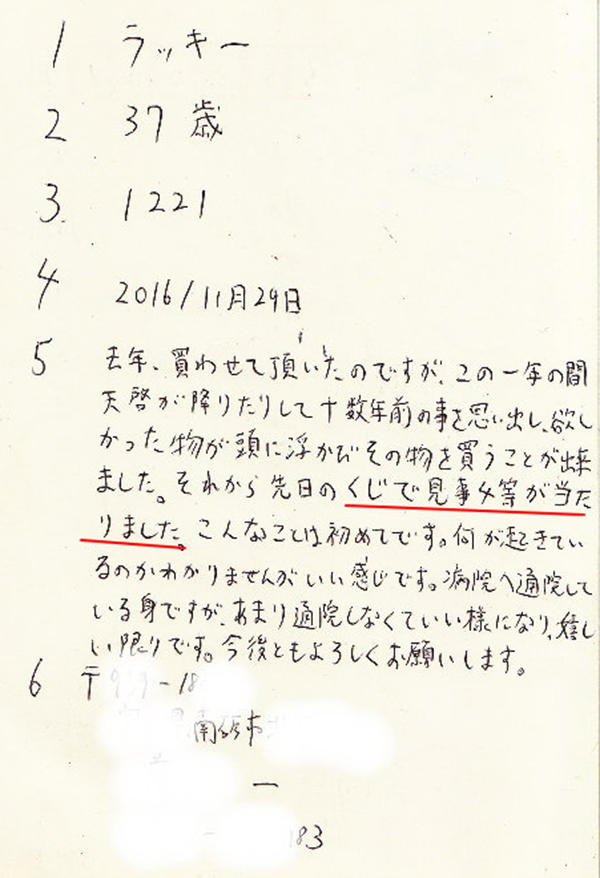 1 ラッキー
2 37歳
3. 1221
4 2016/11月29日
5 去年、買わせて頂いたのですが、この一年の間
天啓が降りたりして十数年前の事を思い出し、欲し
かった物が頭に浮かびその物を買うことが出来
ました。それから先日のくじで見事4等が当た
りました。こんなことは初めてです。何が起きてい
るのかわかりませんがいい感じです。病院へ通院して
いる身ですが、あまり通院しなくていい様になり、嬉し
い限りです。今後ともよろしくお願いします。
6 〒939-18
南砺市
183